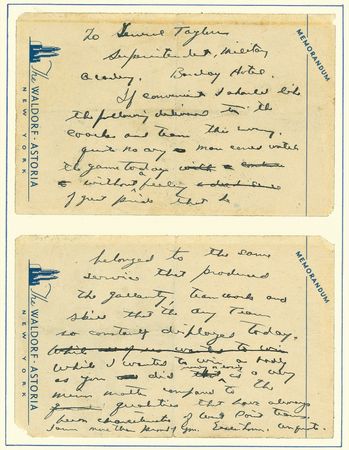 The WALDORF-ASTORIA
NEW YORK
MEMORANDUM
To General Taylor
Superintendent, Military
Academy. Barclay Hotel.
If convenient I should like
the following delivered to the
coaches and team this evening.
quote no army man could watch
the game today with
without feeling
of great pride that he
The WALDORF-ASTORIA
NEW YORK
MEMORANDUM
belonged to the same
service that produced
the gallantry, teamwork and
skill that the Army Team
so constantly displayed today.
While all of us wanted to win
While I wanted to win as badly
as you did is a very
minor matter compared to the
qualities that have always
been characteristic of West Point teams.
I am more than proud of you. Eisenhower. unquote.